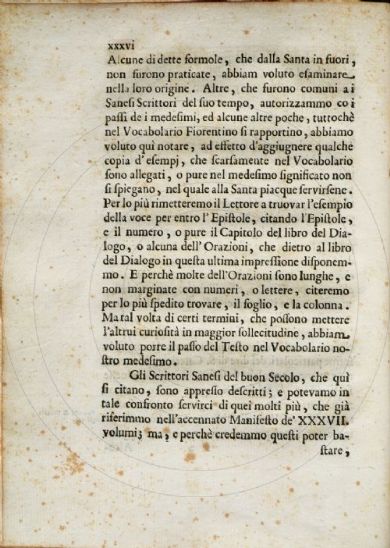 xxxvi
Alcune di dette formole, che dalla Santa in fuori,
non furono praticate, abbiam voluto esaminare
nella loro origine. Altre, che furono comuni ai
Sanesi Scrittori del suo tempo, autorizzammo coi
passi de i medesimi, ed alcune altre poche, tuttochè
nel Vocabolario Fiorentino si rapportino, abbiamo
voluto qui notare, ad effetto d'aggiugnere qualche
copia d'esempj, che scarsamente nel Vocabolario
sono allegati, o pure nel medesimo significato non
si spiegano, nel quale alla Santa piacque servirsene.
Per lo più rimetteremo il Lettore a truovar l'esempio
della voce per entro l'Epistole, citando l'Epistole,
e il numero, o pure il Capitolo del libro del Dia-
logo, o alcuna dell'Orazioni, che dietro al libro
del Dialogo in questa ultima impressione disponem-
mo. E perchè molte dell'Orazioni sono lunghe, e
non marginate con numeri, o lettere, citeremo
per lo più spedito trovare, il foglio, e la colonna.
Ma tal volta di certi termini, che possono mettere
l'altrui curiosità in maggior sollecitudine, abbiam
voluto porre il passo del Testo nel Vocabolario no-
stro medesimo.
Gli Scrittori Sanesi del buon Secolo, che quì
si citano, sono appresso descritti; e potevamo in
tale confronto servirci di quei molti più, che già
riferimmo nell'accennato Manifesto de' XXXVII.
volumi; ma, e perchè credemmo questi poter ba-
stare,